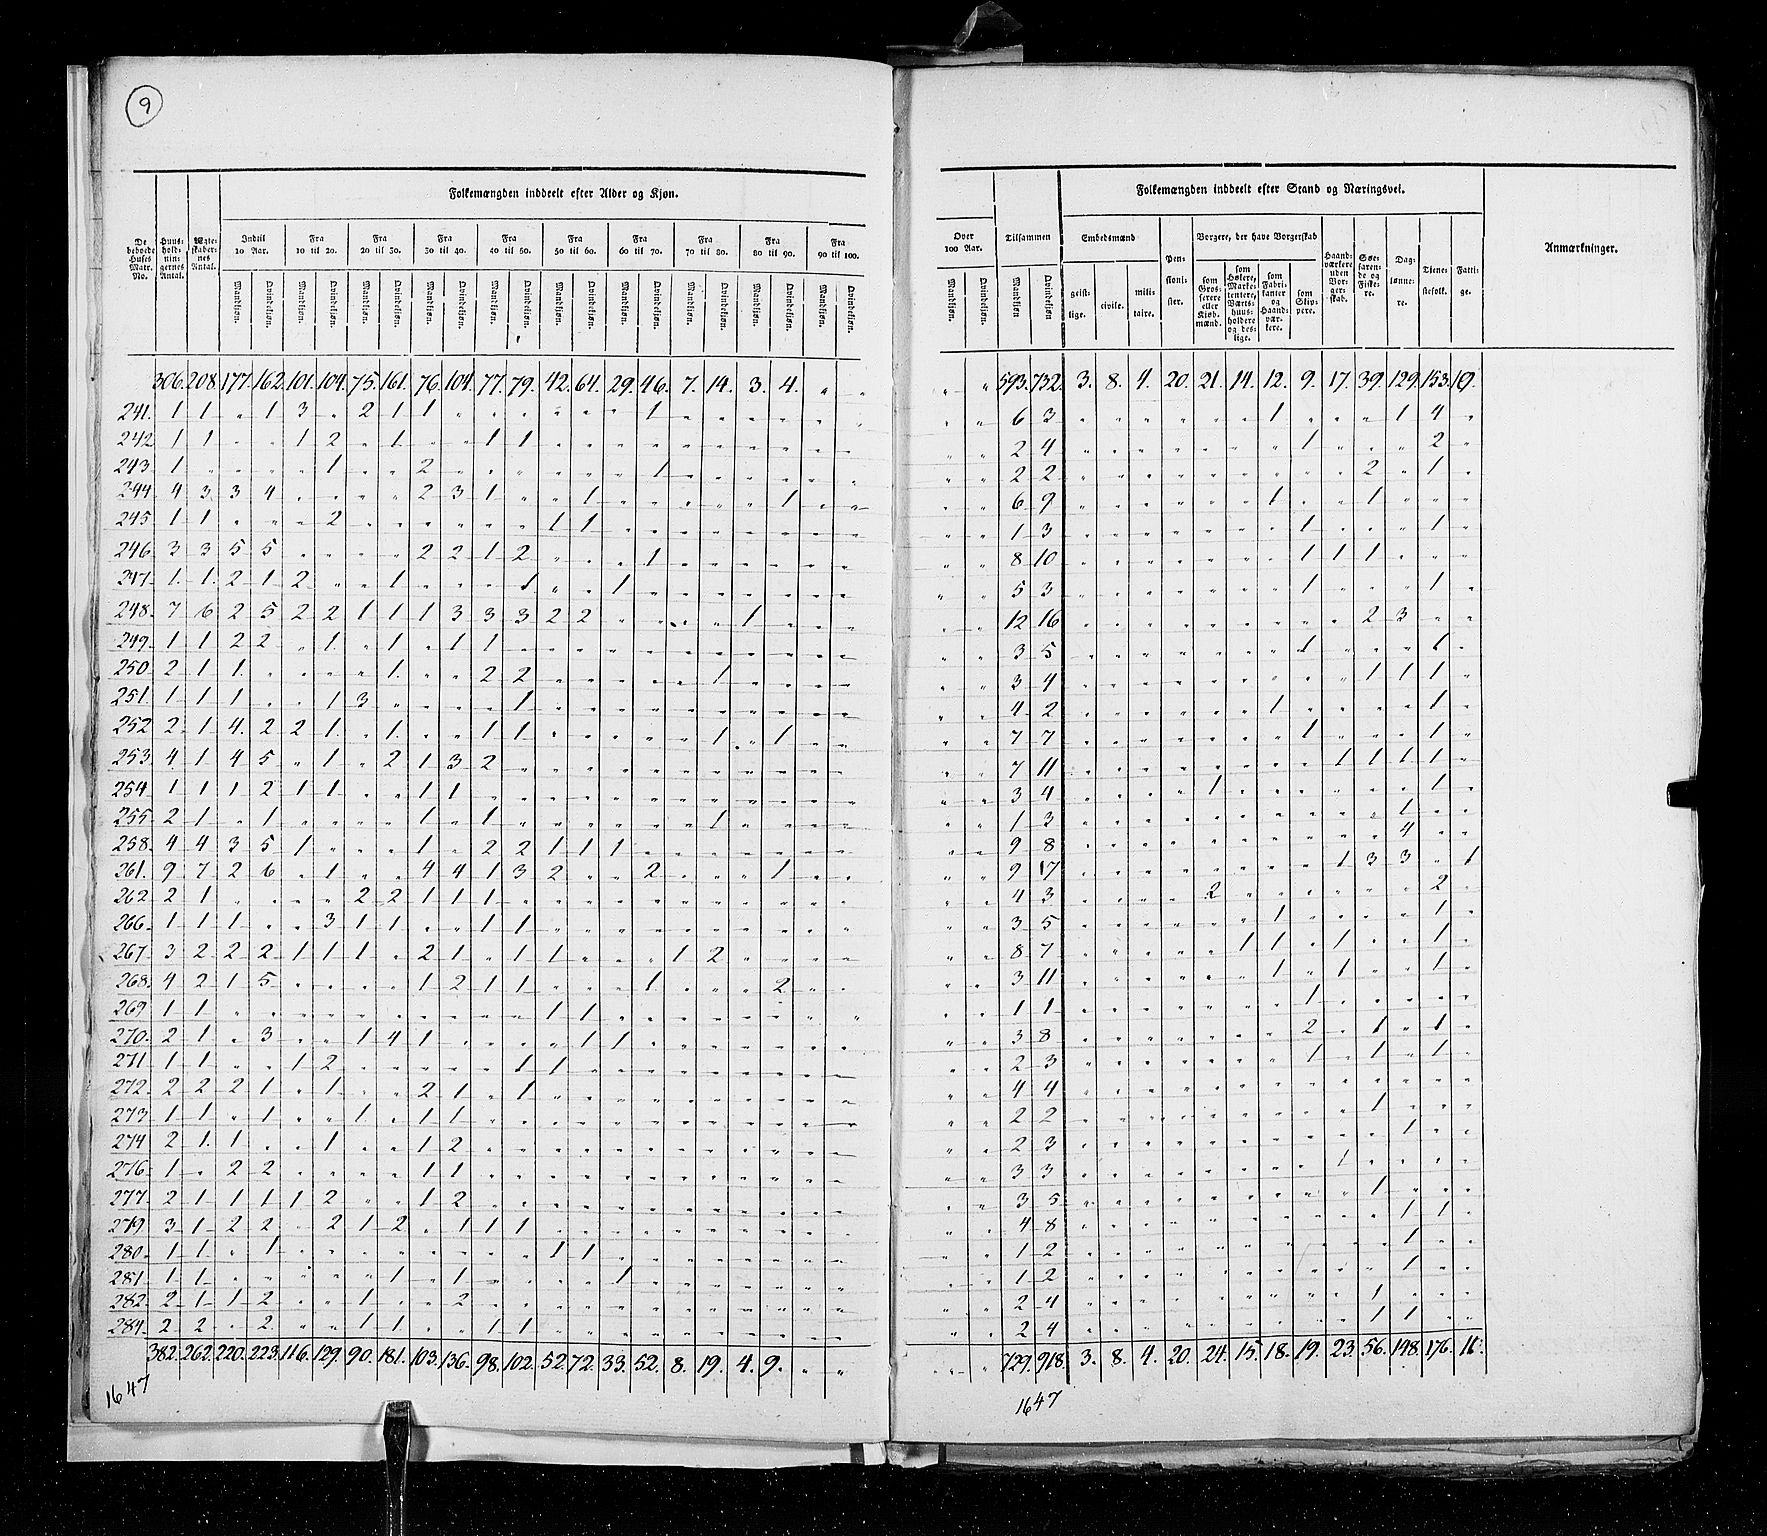 9
Folkemængden inddeelt efter Alder og Kjøn.
De beboede Huses Matr. No.
Huus-hold-nin-gernes Antal.
Ægte-skaber-nes Antal.
Indtil 10 Aar. Fra 10 til 20. Fra 20 til 30. Fra 30 til 40. Fra 40 til 50. Fra 50 til 60. Fra 60 til 70. Fra 70 til 80. Fra 80 til 90. Fra 90 til 100.
Mandkjøn. Qvindekjøn. Mandkjøn. Qvindekjøn. Mandkjøn. Qvindekjøn. Mandkjøn. Qvindekjøn. Mandkjøn. Qvindekjøn. Mandkjøn. Qvindekjøn. Mandkjøn. Qvindekjøn. Mandkjøn. Qvindekjøn. Mandkjøn. Qvindekjøn. Mandkjøn. Qvindekjøn.
306. 208. 177. 162. 101. 104. 75. 161. 76. 104. 77. 79. 42. 64. 29. 46. 7. 14. 3. 4. " "
241. 1 1 " 1 3 " 2 1 1 " " " " " " 1 " " " " " "
242 1 1 " " 1 2 " 1 " " 1 1 " " " " " " " " " "
243 1 " " " " 1 " " 2 " " " " " " 1 " " " " " "
244 4 3 3 4 " " " " 2 3 1 " " 1 " " " " " 1 " "
245 1 1 " " " 2 " " " " " " 1 1 " " " " " " " "
246 3 3 5 5 " " " " 2 2 1 2 " " " 1 " " " " " "
247 1. 1. 2 1 2 " " 1 " " " 1 " " 1 " " " " " " "
248. 7 6 2 5 2 2 1 1 1 3 3 3 2 2 " " " " 1 " " "
249. 1 1 2 2 " 1. " 1 " 1 1 " " " " " " " " " " "
250. 2 1 1. " " " " 1. " " 2 2 " " " " " 1 " " " "
251. 1 1 1 " " 1 3 " " " " 1 " " " " " " " " " "
252 2 1 4. 2 2 1. " 1. " " 1 1 " " " " " 1 " 1 " "
253. 4 1 4 5 " 1 " 2 1 3 2 " " " " " " " " " " "
254 1 1 1 2 1 1 " " 1 1 " " " " " " " " " " " "
255 2 1 " 1 " " " " 1 " 1 " " " " " " 1 " " " "
258. 4 4 3 5 1 " " " 1 " 2 2 1 1 1 " " " " " " "
261. 9 7 2 6 " 1 " " 4 4 1 3 2 " " 2 " " " 1 " "
262 2 1 " " " " 2 2 1 1 1 " " " " " " " " " " "
266 1 1 1 " " 3 1 1 " " 1 1 " " " " " " " " " "
267 3 2 2 2 1 1 1 " 2 1 " 1 1 " " " 1 2 " " " "
268. 4 2 1 5 " " " " 1 2 1 1 " " " 1 " " " 2 " "
269 1 1 " " " " " " " " " " 1 1 " " " " " " " "
270. 2 1 " 3 " " 1 4 1 " " " " 1 1 " " " " " " "
271 1 1 " " 1 2 " " " " " 1 1 " " " " " " " " "
272. 2 2 2 1 " 1 " " 2 1 " 1 " " " " " " " " " "
273 1 1 " 1 " " 1 " 1 1 " " " " " " " " " " " "
274 2 1. 1 " " 1 " " 1 2 " " " " " " " " " " " "
276 1 " 2 2 " " " " 1 1 " " " " " " " " " " " "
277. 2 1 1 1 1 2 " " 1 2 " " " " " " " " " " " "
279. 3 1 2 2 " 2 1 2 " 1 1 1 " " " " " " " " " "
280. 1 1 " 1 " " " " " " " " 1 1 " " " " " " " "
281 1 1 " " " " " 1 " 1 " " " " 1 " " " " " " "
282. 2 1 1 2 " " 1 " " 2 " " " " " " " " " " " "
284. 2 2 " 2 " " 1 1 " " 1 1 " " " " " " " " " "
382. 262. 220. 223. 116. 129. 90. 181. 103. 136. 98. 102. 52. 72. 33. 52. 8. 19. 4. 9. " "
1647
Folkemængden inddeelt efter Stand og Næringsvei.
Anmærkninger.
Over 100 Aar. Tilsammen
Mandkjøn. Qvindekjøn. Mandkjøn Qvindekjøn
Embedsmænd
geist-lige. civile. mili-taire.
Pen-sioni-ster.
Borgere, der have Borgerskab
som Gros-serere eller Kjøb-mænd.
som Høkere, Marke-tentere, Værts-huus-holdere og des-lige.
som Fabri-kanter og Haand-vær-kere.
som Skip-pere.
Haand-værkere uden Bor-ger-skab.
Søe-faren-de og Fiske-re.
Dag-lønne-re.
Tjene-stefolk.
Fatti-ge.
" " 593. 732. 3. 8. 4. 20. 21. 14. 12. 9. 17. 39. 129. 153. 10.
" " 6 3 " " " " " " 1 " " " 1 4 "
" " 2 4 " " " " " " " 1 " " " 2 "
" " 2 2 " " " " " " " " " 2 " 1 "
" " 6 9 " " " " " " 1 " " 1 " " "
" " 1 3 " " " " " " " 1 " " " 1 "
" " 8 10 " " " " " " " 1 1 1 " " "
" " 5 3 " " " " " " " 1 " " " 1 "
" " 12 16 " " " " " " " " " 2 3 " "
" " 3 5 " " " " " " " 1 " " " 1 "
" " 3 4 " " " " " " " " " 1 1 1 "
" " 4 2 " " " " " " 1 " " " " 1 "
" " 7 7 " " " " " " " 1 " " " 1 "
" " 7 11 " " " " " " " " 1 1 1 1 "
" " 3 4 " " " " 1 " " " " " " 1 "
" " 1 3 " " " " " " " " " " 1 " "
" " 9 8 " " " " " " " " " " 4 " "
" " 9 17 " " " " " " " " 1 3 3 " 1
" " 4 3 " " " " 2 " " " " " " 2 "
" " 3 5 " " " " " " 1 " " " " 1 "
" " 8 7 " " " " " 1 1 " 1 " " 1 "
" " 3 11 " " " " " " 1 " 1 " " 1 "
" " 1 1 " " " " " " " 1 " " " " "
" " 3 8 " " " " " " " 2 " 1 " 1 "
" " 2 3 " " " " " " " 1 " 1 " 1 "
" " 4 4 " " " " " " " " " " " " "
" " 2 2 " " " " " " " " " 1 " " "
" " 2 3 " " " " " " " " " " 1 " "
" " 3 3 " " " " " " " " 1 " " " "
" " 3 5 " " " " " " " " " 1 " " "
" " 4 8 " " " " " " " " " " 1 1 "
" " 1 2 " " " " " " " " " " 1 " "
" " 1 2 " " " " " " " " " " 1 " "
" " 2 4 " " " " " " " " " 1 " " "
" " 2 4 " " " " " " " " " 1 1 " "
" " 729. 918. 3. 8. 4. 20. 24. 15. 18. 19. 23. 56. 148. 176. 11.
1647